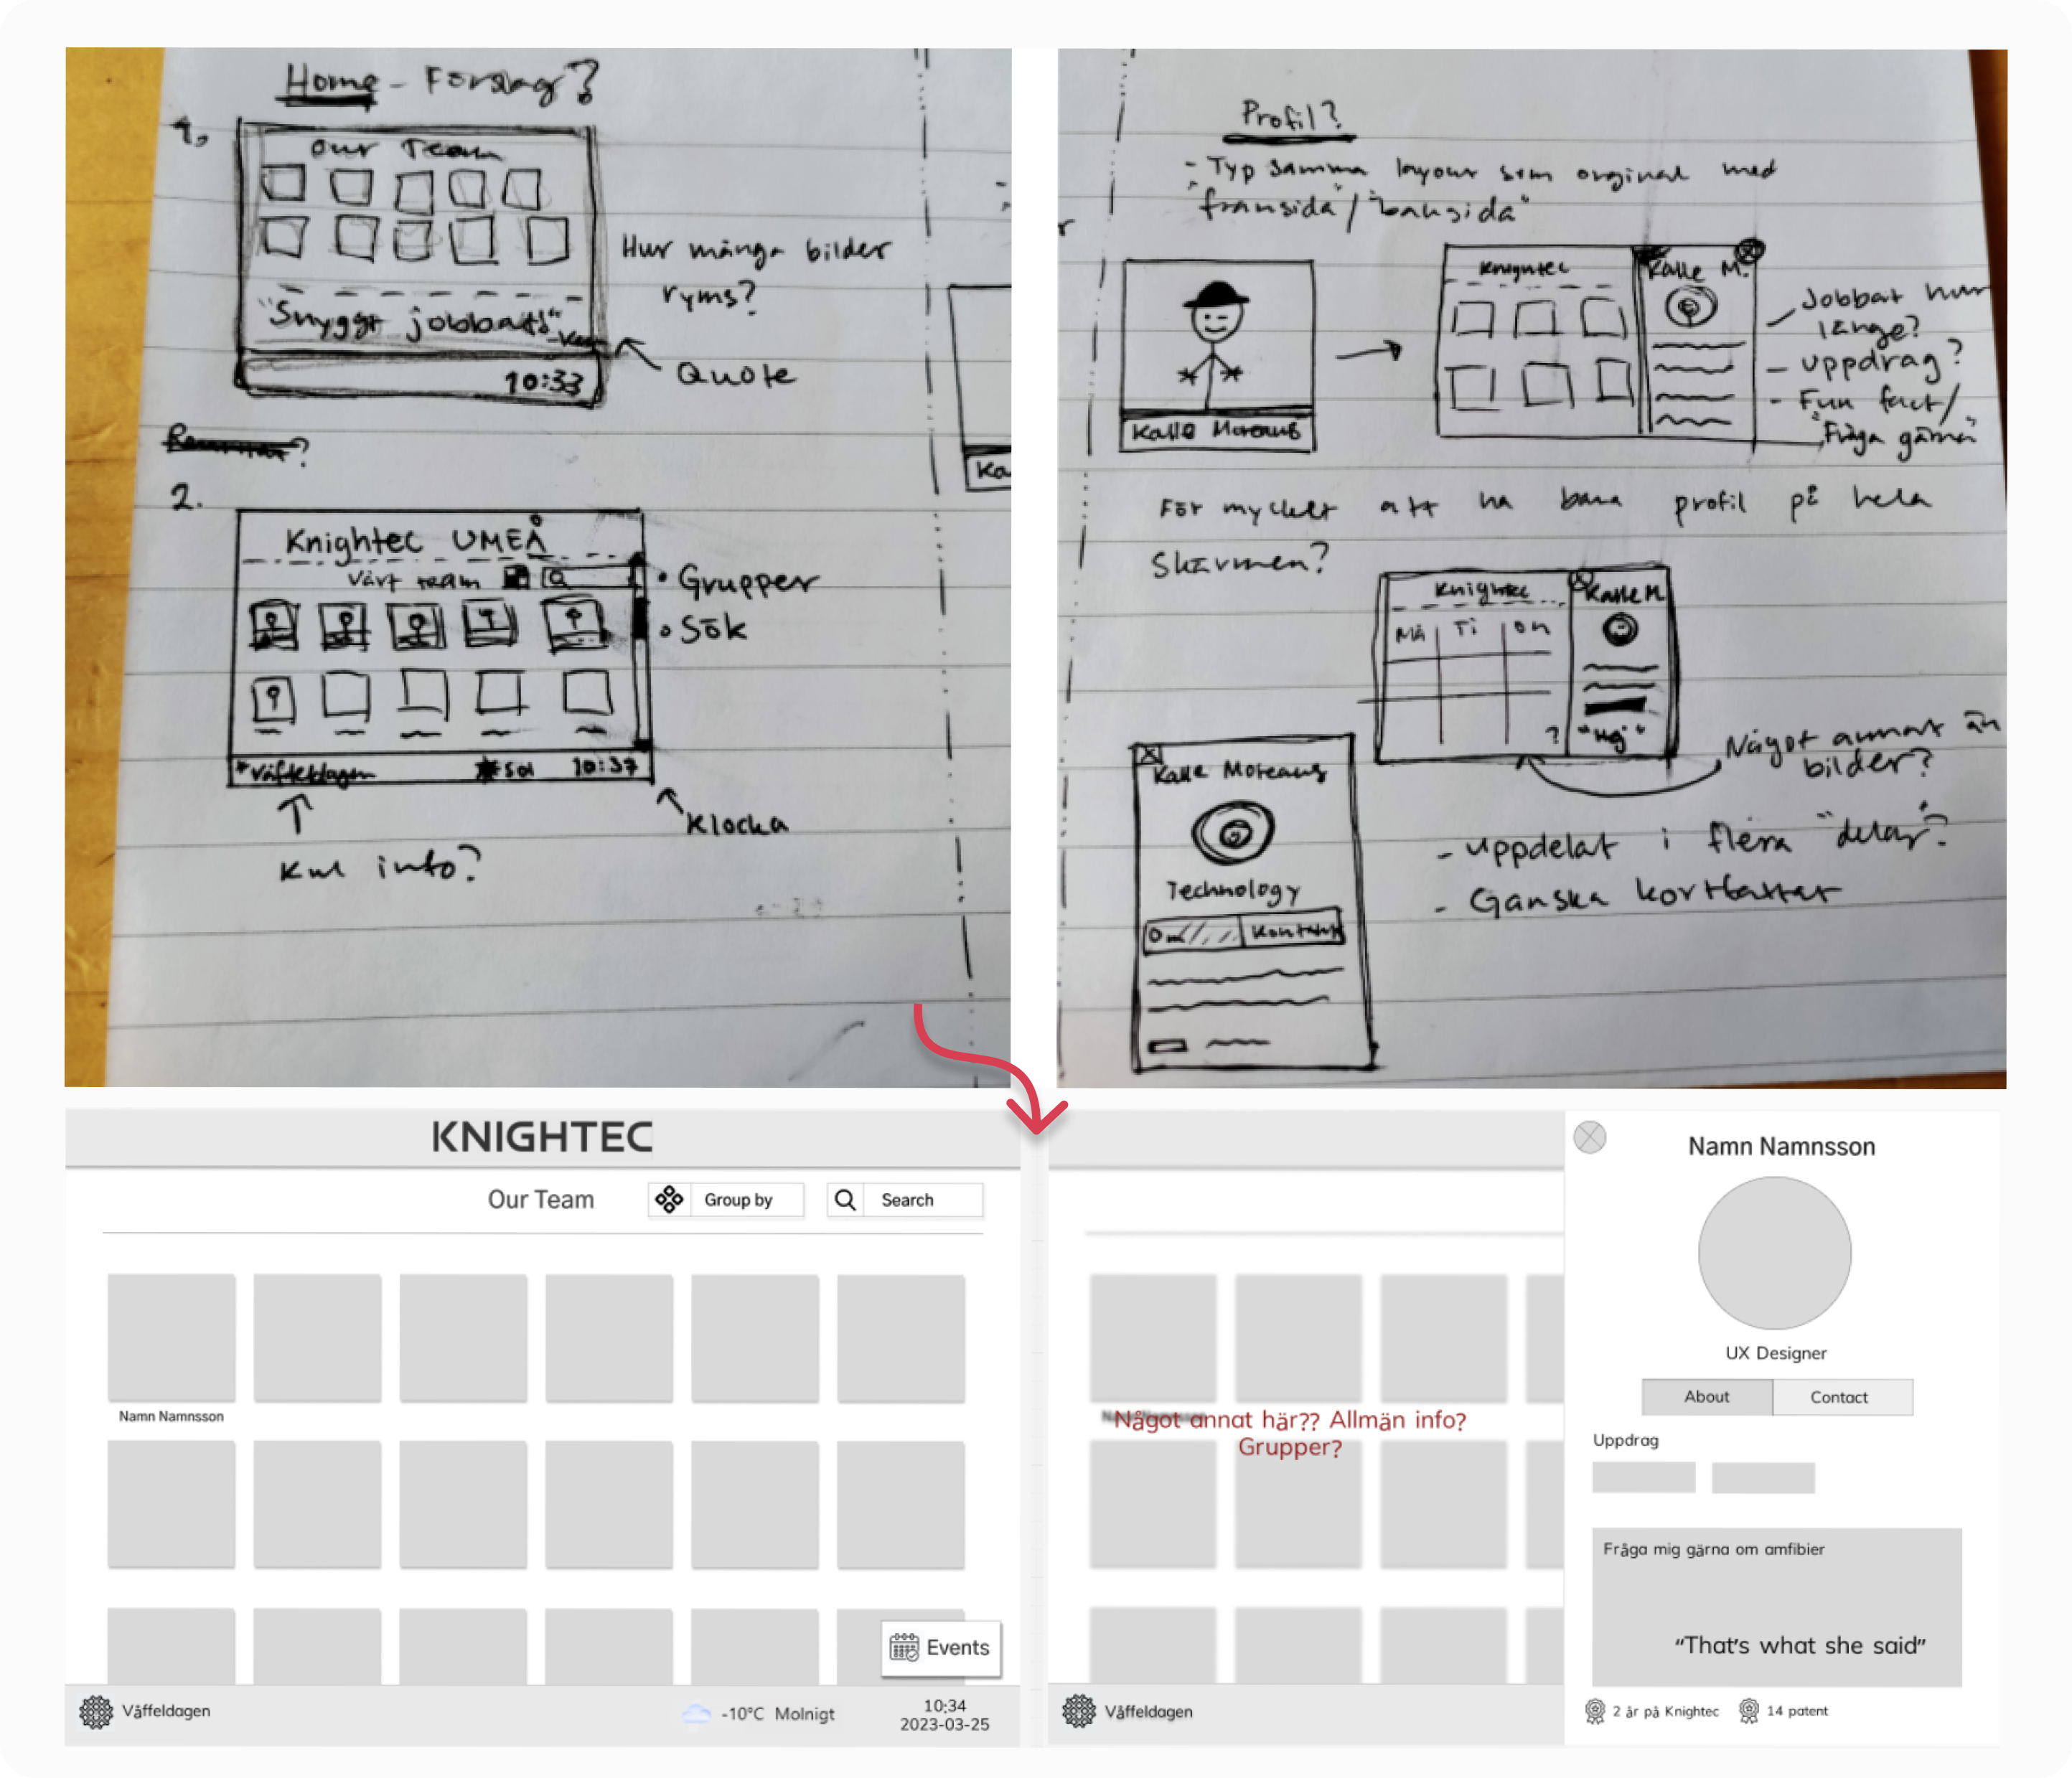 Home - Förslag?
1.
Our Team
"Snyggt jobbat!"
10:33
Hur många bilder
ryms?
Quote
?
2.
Knightec UMEÅ
Vårt team
• Grupper
• Sök
*Våffeldagen
Sol
10:37
Klocka
Kul info?
Ka
Profil?
- Typ samma layout som orginal med
"framsida" / "baksida"
Kalle Moreaus
Knightec
Kalle M.
Jobbat hur
länge?
- uppdrag?
- Fun fact/
"Fråga gärna"
För mycket att ha bara profil på hela
Skärmen?
Knightec
Kalle M
Må Ti On
?
"Hej"
Något annat än
bilder?
Kalle Moreaus
Technology
Om
Kontakt
- uppdelat i flera "delar"?
- Ganska kortfattat
KNIGHTEC
Our Team
Group by
Search
Namn Namnsson
Events
Våffeldagen
-10°C Molnigt
10:34
2023-03-25
Något annat här?? Allmän info?
Grupper?
Våffeldagen
Namn Namnsson
UX Designer
About
Contact
Uppdrag
Fråga mig gärna om amfibier
"That's what she said"
2 år på Knightec
14 patent